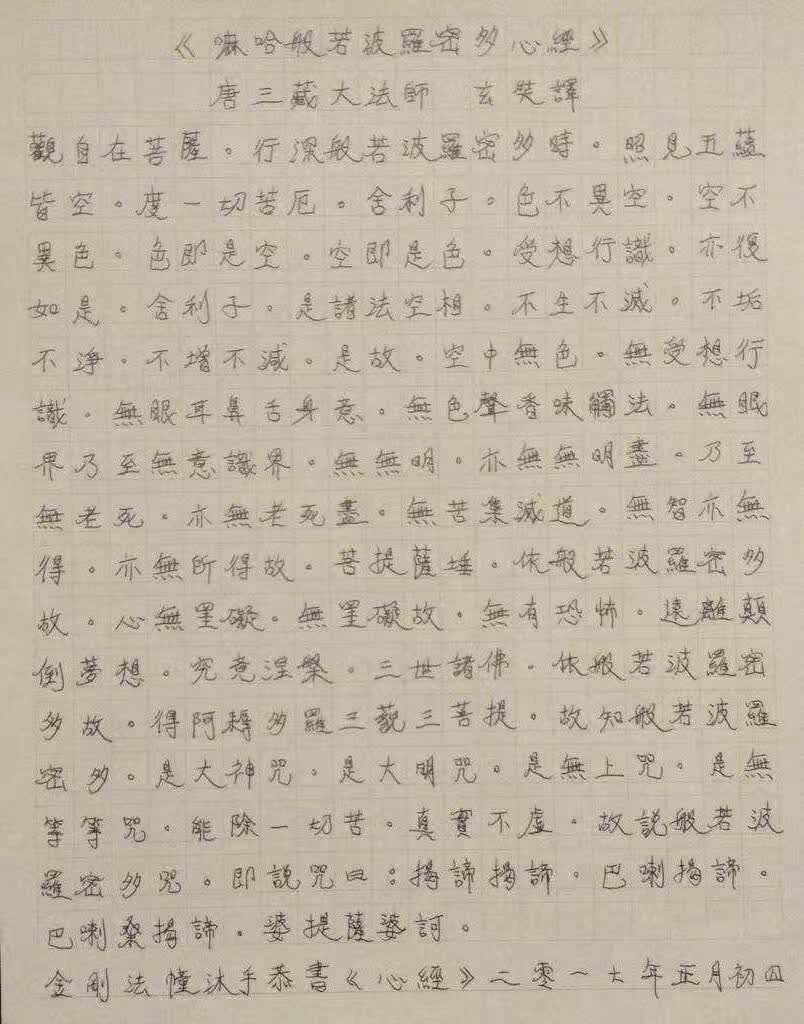 《嘛哈般若波羅密多心經》
唐三藏大法師　玄奘譯
觀自在菩薩。行深般若波羅密多時。照見五蘊
皆空。度一切苦厄。舍利子。色不異空。空不
異色。色即是空。空即是色。受想行識。亦復
如是。舍利子。是諸法空相。不生不滅。不垢
不淨。不增不減。是故。空中無色。無受想行
識。無眼耳鼻舌身意。無色聲香味觸法。無眼
界乃至無意識界。無無明。亦無無明盡。乃至
無老死。亦無老死盡。無苦集滅道。無智亦無
得。亦無所得故。菩提薩埵。依般若波羅密多
故。心無罣礙。無罣礙故。無有恐怖。遠離顛
倒夢想。究竟涅槃。三世諸佛。依般若波羅密
多故。得阿耨多羅三藐三菩提。故知般若波羅
密多。是大神咒。是大明咒。是無上咒。是無
等等咒。能除一切苦。真實不虛。故說般若波
羅密多咒。即說咒曰：揭諦揭諦。巴喇揭諦。
巴喇桑揭諦。婆提薩婆訶。
金剛法幢沐手恭書《心經》二零一六年正月初四